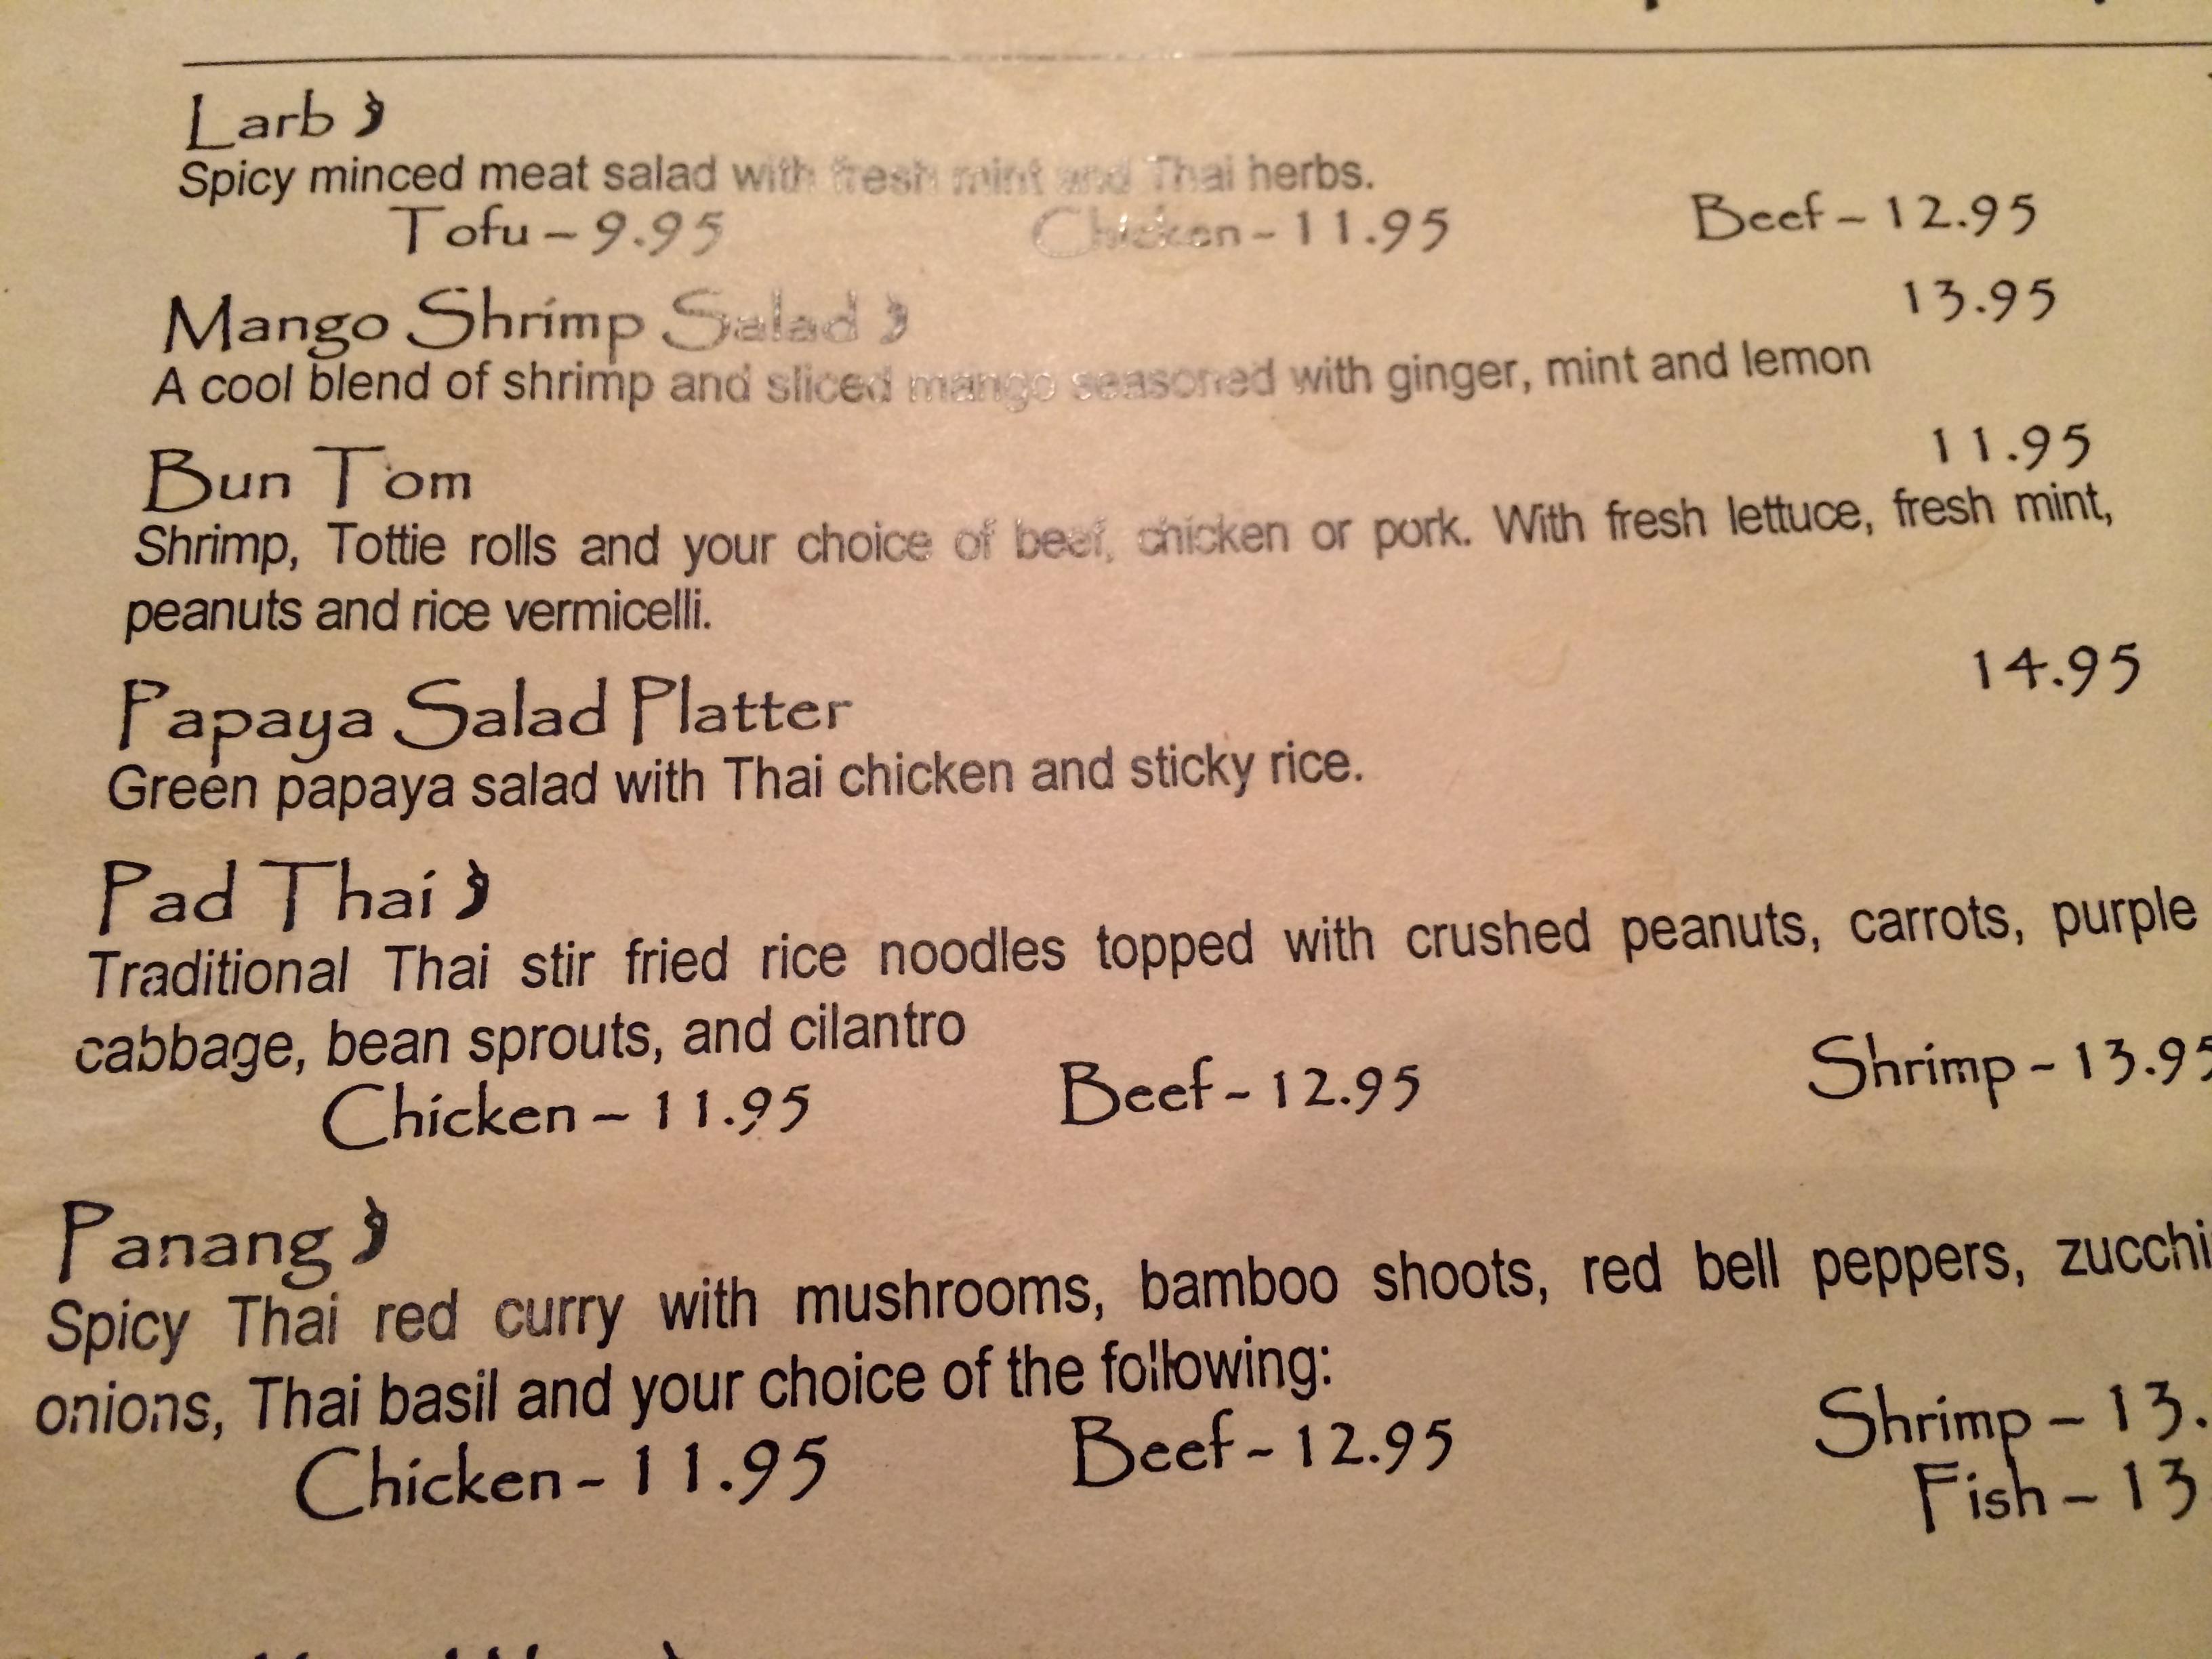 Larb
Spicy minced meat salad with fresh mint and Thai herbs.
Tofu – 9.95 Chicken – 11.95 Beef – 12.95
Mango Shrimp Salad 13.95
A cool blend of shrimp and sliced mango seasoned with ginger, mint and lemon
Bun Tom 11.95
Shrimp, Tottie rolls and your choice of beef, chicken or pork. With fresh lettuce, fresh mint,
peanuts and rice vermicelli.
Papaya Salad Platter 14.95
Green papaya salad with Thai chicken and sticky rice.
Pad Thai
Traditional Thai stir fried rice noodles topped with crushed peanuts, carrots, purple
cabbage, bean sprouts, and cilantro
Chicken – 11.95 Beef – 12.95 Shrimp – 13.95
Panang
Spicy Thai red curry with mushrooms, bamboo shoots, red bell peppers, zucchi
onions, Thai basil and your choice of the following:
Chicken – 11.95 Beef – 12.95 Shrimp – 13.
Fish – 13